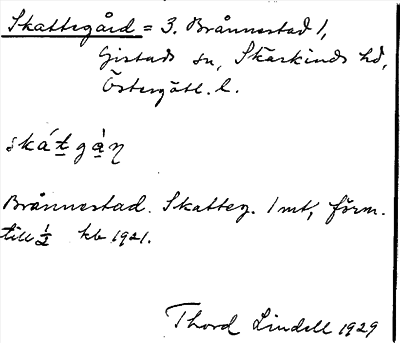 Skattegård = 3. Brånnestad 1,
Gistads sn, Skärkinds hd,
Östergötl. l.
skát gàn
Brånnestad. Skatteg. 1 mt, förm.
till ½ kb 1921.
Thord Lindell 1929